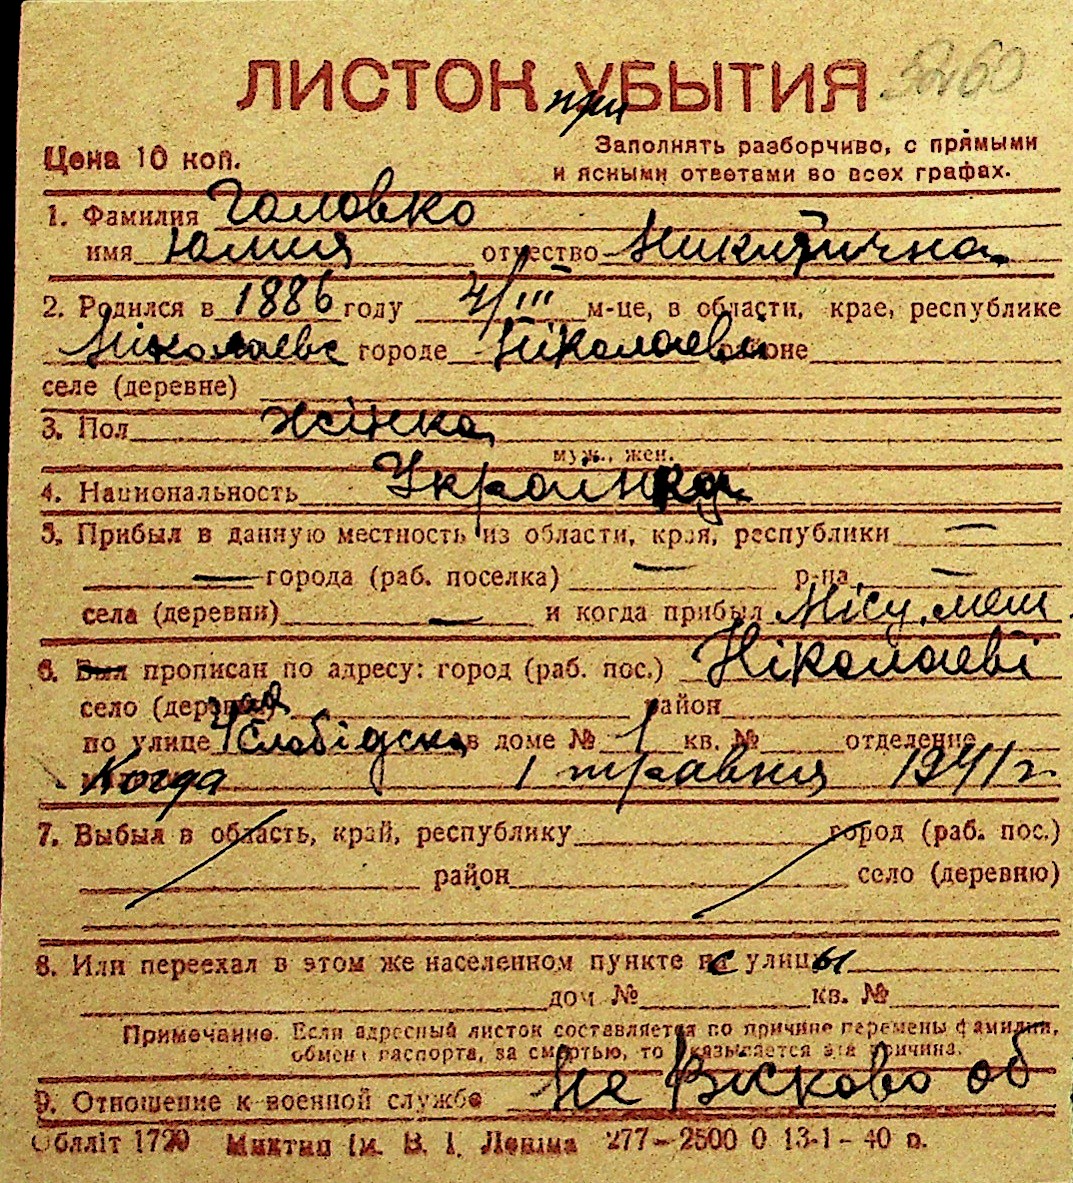 ЛИСТОК при УБЫТИЯ
Цена 10 коп.
Заполнять разборчиво, с прямыми
и ясными ответами во всех графах.
1. Фамилия Головко
имя Юлия отчество Никитична
2. Родился в 1886 году 4/III м-це, в области, крае, республике
Ніколаевс городе Ніколаеві районе
селе (деревне)
3. Пол жінка
муж., жен.
4. Национальность Українка
5. Прибыл в данную местность из области, края, республики —
— города (раб. поселка) — р-на —
села (деревни) — и когда прибыл Місц. меш
6. Был прописан по адресу: город (раб. пос.) Ніколаеві
село (деревня) район
по улице 4 Слобідска в доме № 1 кв. № отделение
Когда 1 травня 1941 г.
7. Выбыл в область, край, республику город (раб. пос.)
район село (деревню)
8. Или переехал в этом же населенном пункте с улицы
дом № кв. №
Примечание. Если адресный листок составляется по причине перемены фамилии,
обмена паспорта, за смертью, то указывается эта причина.
9. Отношение к военной службе Не Вісково об
Обліт 1720 Миктип ім. В. І. Леніна 277–2500 0 13-1-40 п.